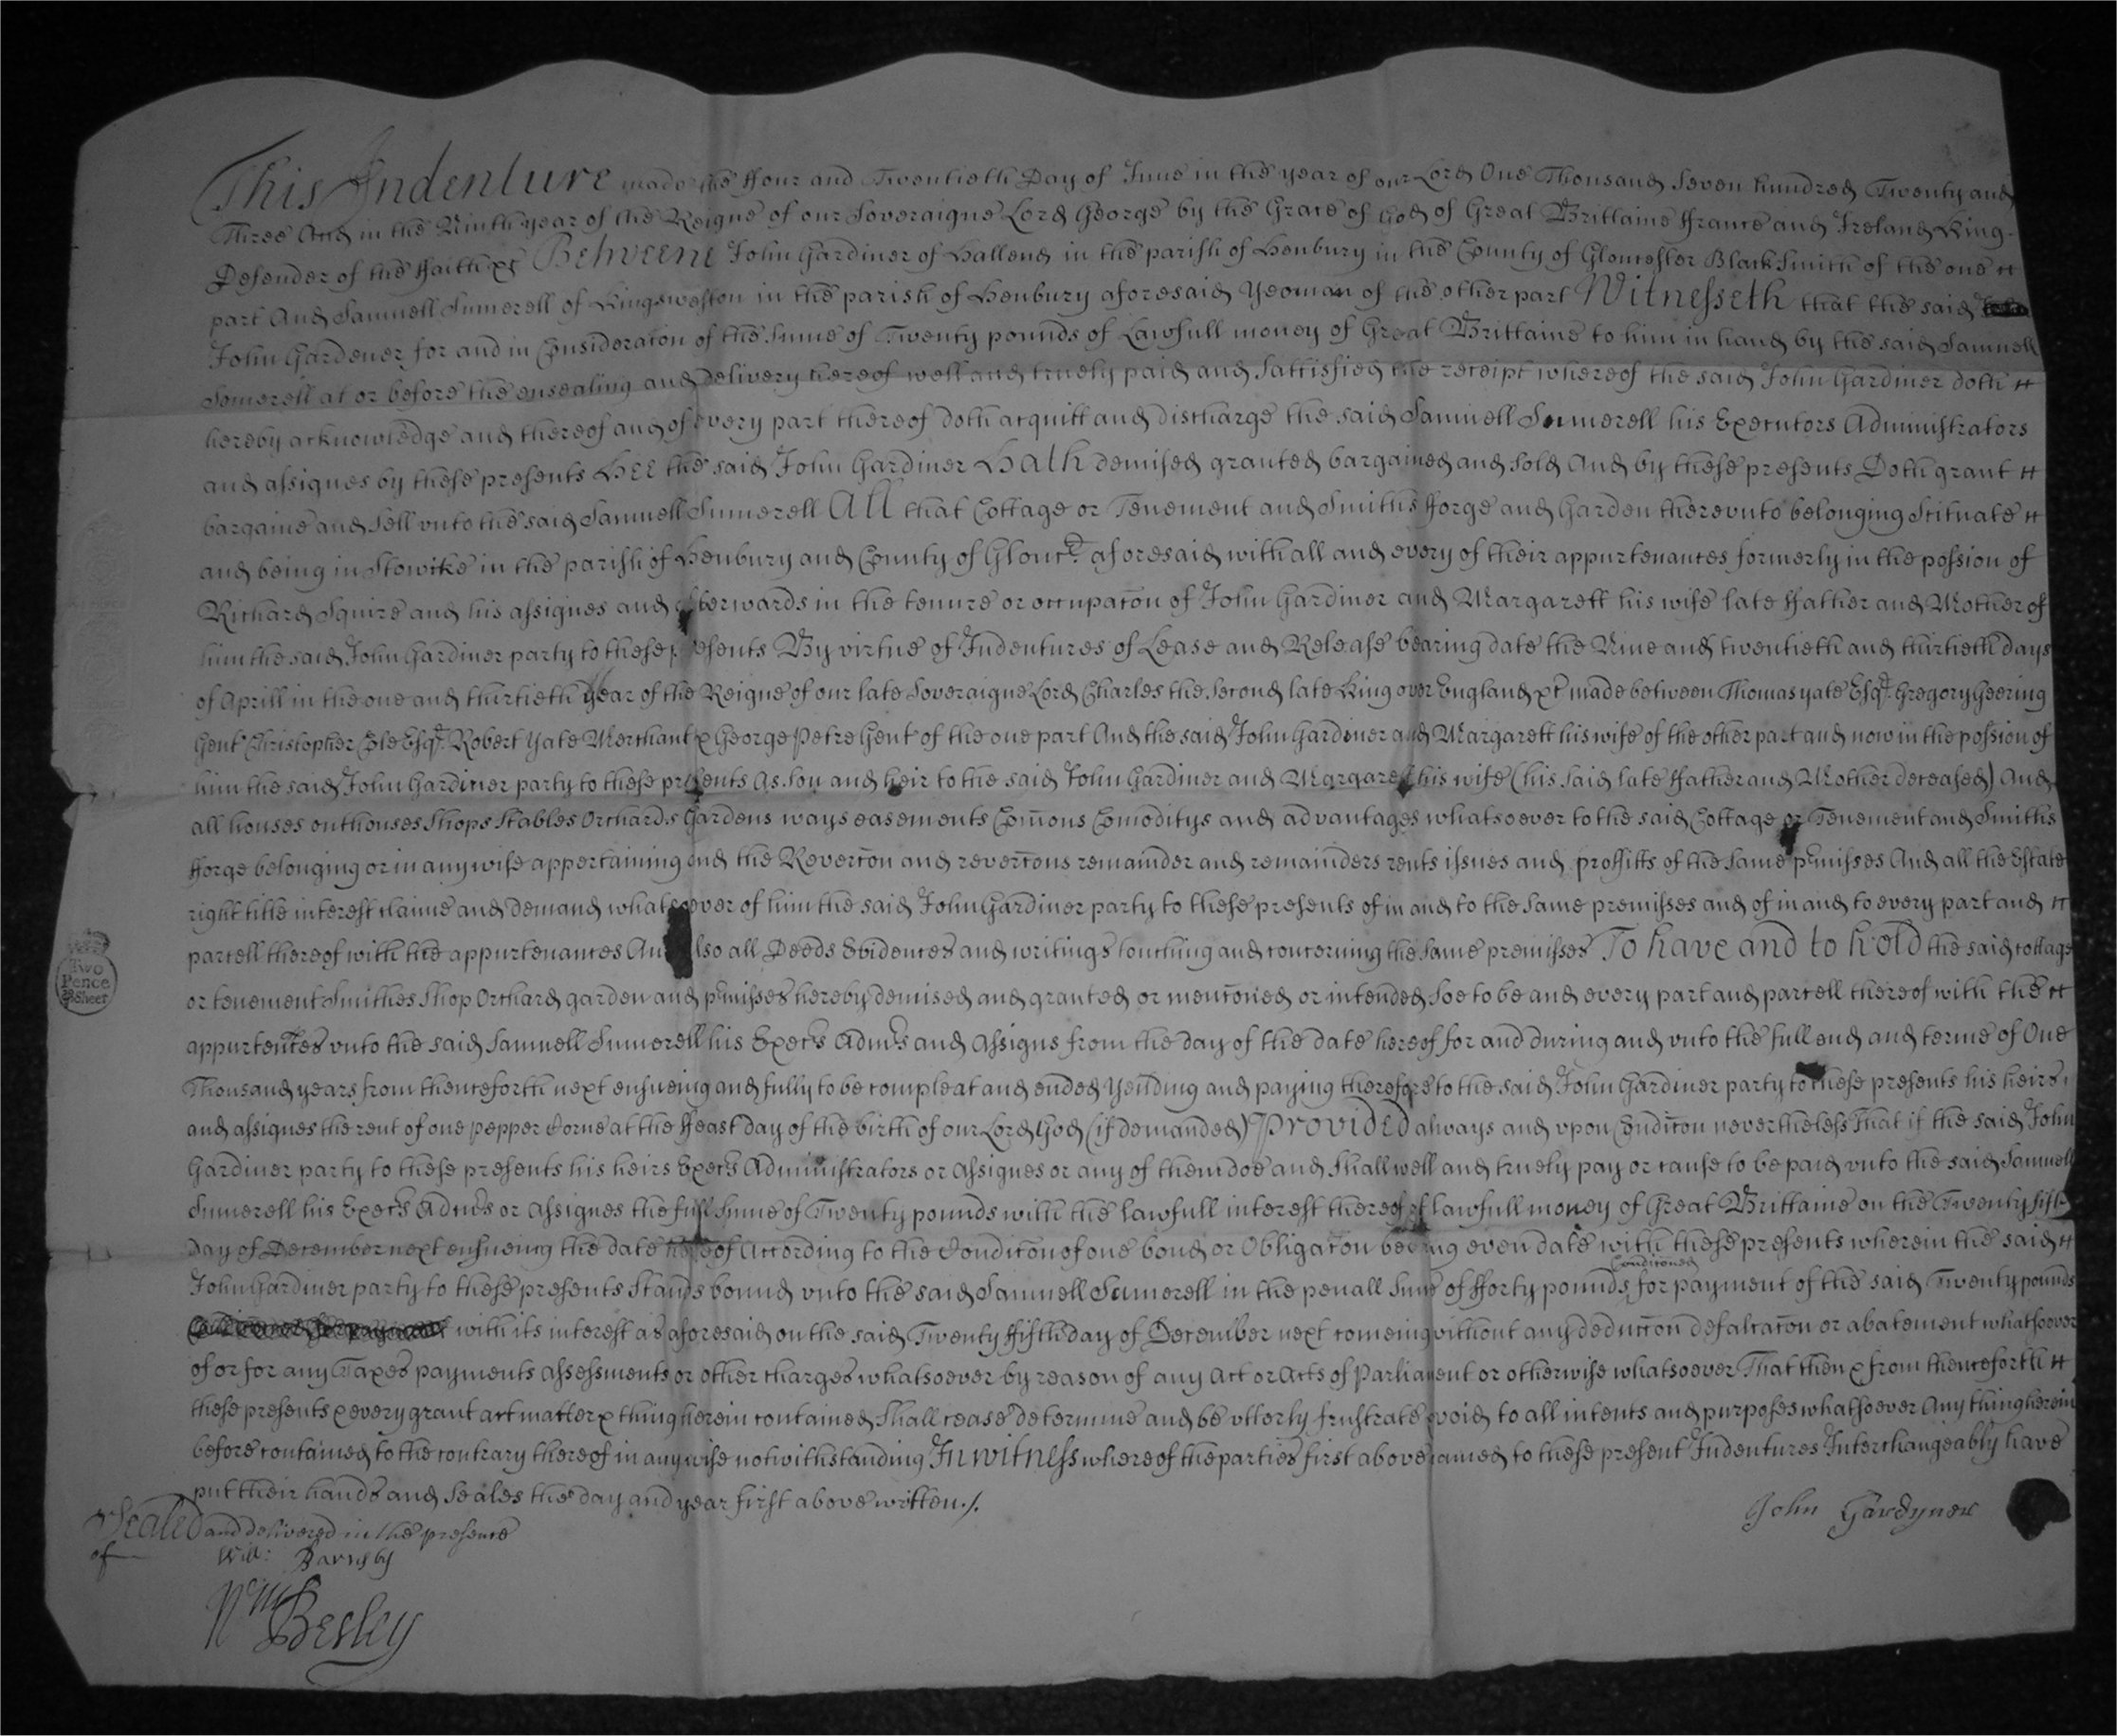 This Indenture made the ffour and Twentieth Day of June in the year of our Lord One Thousand Seven hundred Twenty and
Three And in the Ninth year of the Reigne of our Soveraigne Lord George by the Grace of God of Great Brittaine ffrance and Ireland King
Defender of the ffaith &c Betweene John Gardiner of Hallend in the parish of Henbury in the County of Gloucester BlackSmith of the one
part And Samuell Sumerell of Kingsweston in the parish of Henbury aforesaid Yeoman of the other part Witnesseth that the said
John Gardener for and in Consideracon of the Sume of Twenty pounds of Lawfull money of Great Brittaine to him in hand by the said Samuell
Somerell at or before the ensealing and Delivery hereof well and truely paid and Sattisfied the receipt whereof the said John Gardiner doth
hereby acknowledge and thereof and of every part thereof doth acquitt and discharge the said Samuell Sumerell his Executors Administrators
and assignes by these presents Hee the said John Gardiner Hath demised granted bargained and sold And by these presents Doth grant
bargaine and Sell unto the said Samuell Sumerell All that Cottage or Tenement and Smiths fforge and Garden thereunto belonging Scituate
and being in Stowike in the parish of Henbury and County of Gloucr. aforesaid with all and every of their appurtenances formerly in the possion of
Richard Squire and his assignes and afterwards in the tenure or occupacon of John Gardiner and Margarett his wife late ffather and Mother of
him the said John Gardiner party to these presents By virtue of Indentures of Lease and Release bearing date the Nine and twentieth and thirtieth days
of Aprill in the one and thirtieth year of the Reigne of our late Soveraigne Lord Charles the Second late King over England &c made between Thomas yate Esqr. Gregory Geering
Gent Christopher Cole Esqr. Robert Yate Merchant & George Petre Gent of the one part And the said John Gardiner and Margarett his wife of the other part and now in the possion of
him the said John Gardiner party to these presents As Son and heir to the said John Gardiner and Margarett his wife (his said late ffather and Mother deceased) And
all houses outhouses Shops Stables Orchards Gardens ways easements Comons Comoditys and advantages whatsoever to the said Cottage or Tenement and Smiths
fforge belonging or in any wise appertaining And the Revercon and revercons remainder and remainders rents issues and proffitts of the Same pmisses And all the Estate
right title interest claime and demand whatsoever of him the said John Gardiner party to these presents of in and to the Same premisses and of in and to every part and
parcell thereof with the appurtenances And Also all Deeds Evidences and writings touching and concerning the Same premisses To have and to hold the said cottage
or tenement Smithes Shop Orchard garden and pmisses hereby demised and granted or mencioned or intended Soe to be and every part and parcell thereof with the
appurtences unto the said Samuell Sumerell his Execrs Admrs and Assigns from the day of the date hereof for and during and unto the full end and terme of One
Thousand years from thenceforth next ensueing and fully to be compleat and ended Yeilding and paying therefore to the said John Gardiner party to these presents his heirs
and assignes the rent of one pepper Corne at the ffeast day of the birth of our Lord God (if demanded) Provided always and upon Condicon nevertheless That if the said John
Gardiner party to these presents his heirs Execrs Administrators or Assignes or any of them doe and Shall well and truely pay or cause to be paid unto the said Samuell
Sumerell his Execrs Admrs or Assignes the full Sume of Twenty pounds with the lawfull interest thereof of lawfull money of Great Brittaine on the Twenty fift
Day of December next ensueing the date hereof According to the Condicon of one bond or Obligacon bearing even date with these presents wherein the said
Condiconed
John Gardiner party to these presents Stands bound unto the said Samuell Sumerell in the penall Sume of fforty pounds for payment of the said Twenty pounds
with its interest as aforesaid on the said Twenty ffifth day of December next comeing without any deduccon defalcacon or abatement whatsoever
of or for any Taxes payments Assessments or other charges whatsoever by reason of any Act or Acts of Parliament or otherwise whatsoever That then & from thenceforth
these presents & every grant act matter & thing herein contained Shall cease determine and be utterly frustrate & void to all intents and purposes whatsoever Any thing herein
before contained to the contrary thereof in any wise notwithstanding In witness whereof the parties first above named to these present Indentures Interchangeably have
put their hands and Seales the day and year first above written./.
John Gardyner
Sealed and delivered in the presence
of
Will: Barnsby
Wm Besley
Two
Pence
Sheet